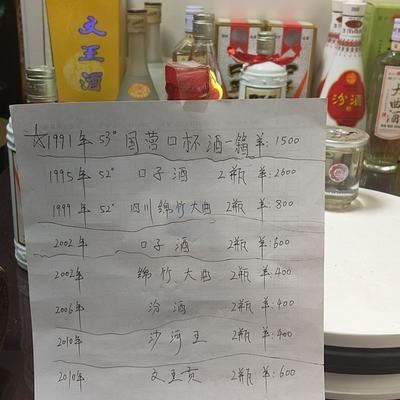 文王酒
汾酒
大曲酒
☆1991年 53° 国营口杯酒一箱 羊:1500
1995年 52° 口子酒 2瓶 羊:2600
1999年 52° 四川绵竹大曲 2瓶 羊:800
2002年 口子酒 2瓶 羊:600
2002年 绵竹大曲 2瓶 羊:400
2006年 汾酒 2瓶 羊:400
2010年 沙河王 2瓶 羊:400
2010年 文王贡 2瓶 羊:600